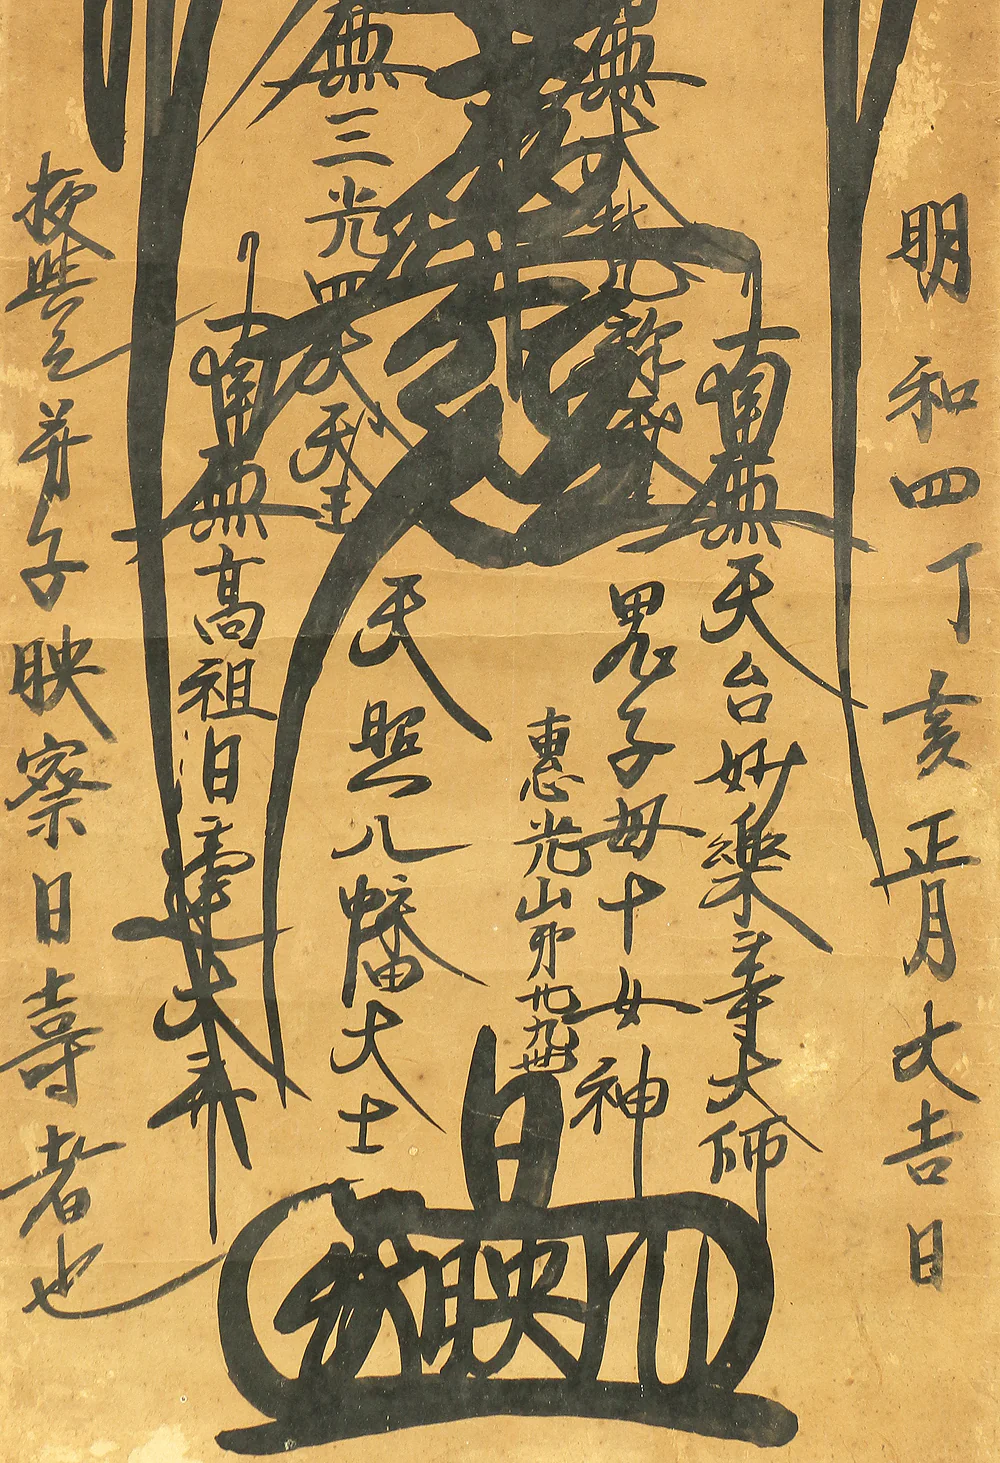 明和四丁亥正月大吉日
南無天台妙楽章大師
無大梵
鬼子母十女神
恵光山
廿九世
日映
無三光四大天王
天照八幡大士
南無高祖日蓮大菩薩
授与之 弟子映察日寿者也